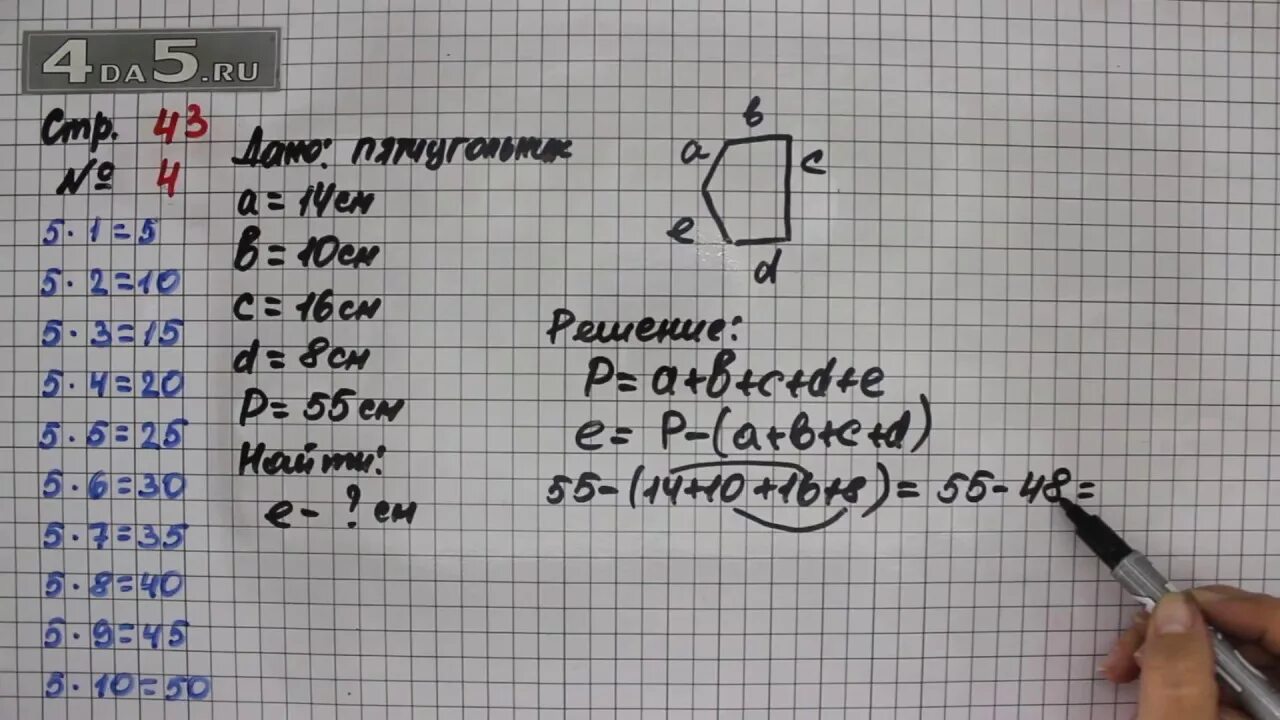 4DA5.RU
Стр. 43
№ 4
5 · 1 = 5
5 · 2 = 10
5 · 3 = 15
5 · 4 = 20
5 · 5 = 25
5 · 6 = 30
5 · 7 = 35
5 · 8 = 40
5 · 9 = 45
5 · 10 = 50
Дано: пятиугольник
a = 14 см
в = 10 см
c = 16 см
d = 8 см
P = 55 см
Найти:
e - ? см
в
a
c
e
d
Решение:
P = a+в+c+d+e
e = P-(a+в+c+d)
55-(14+10+16+8) = 55-48=